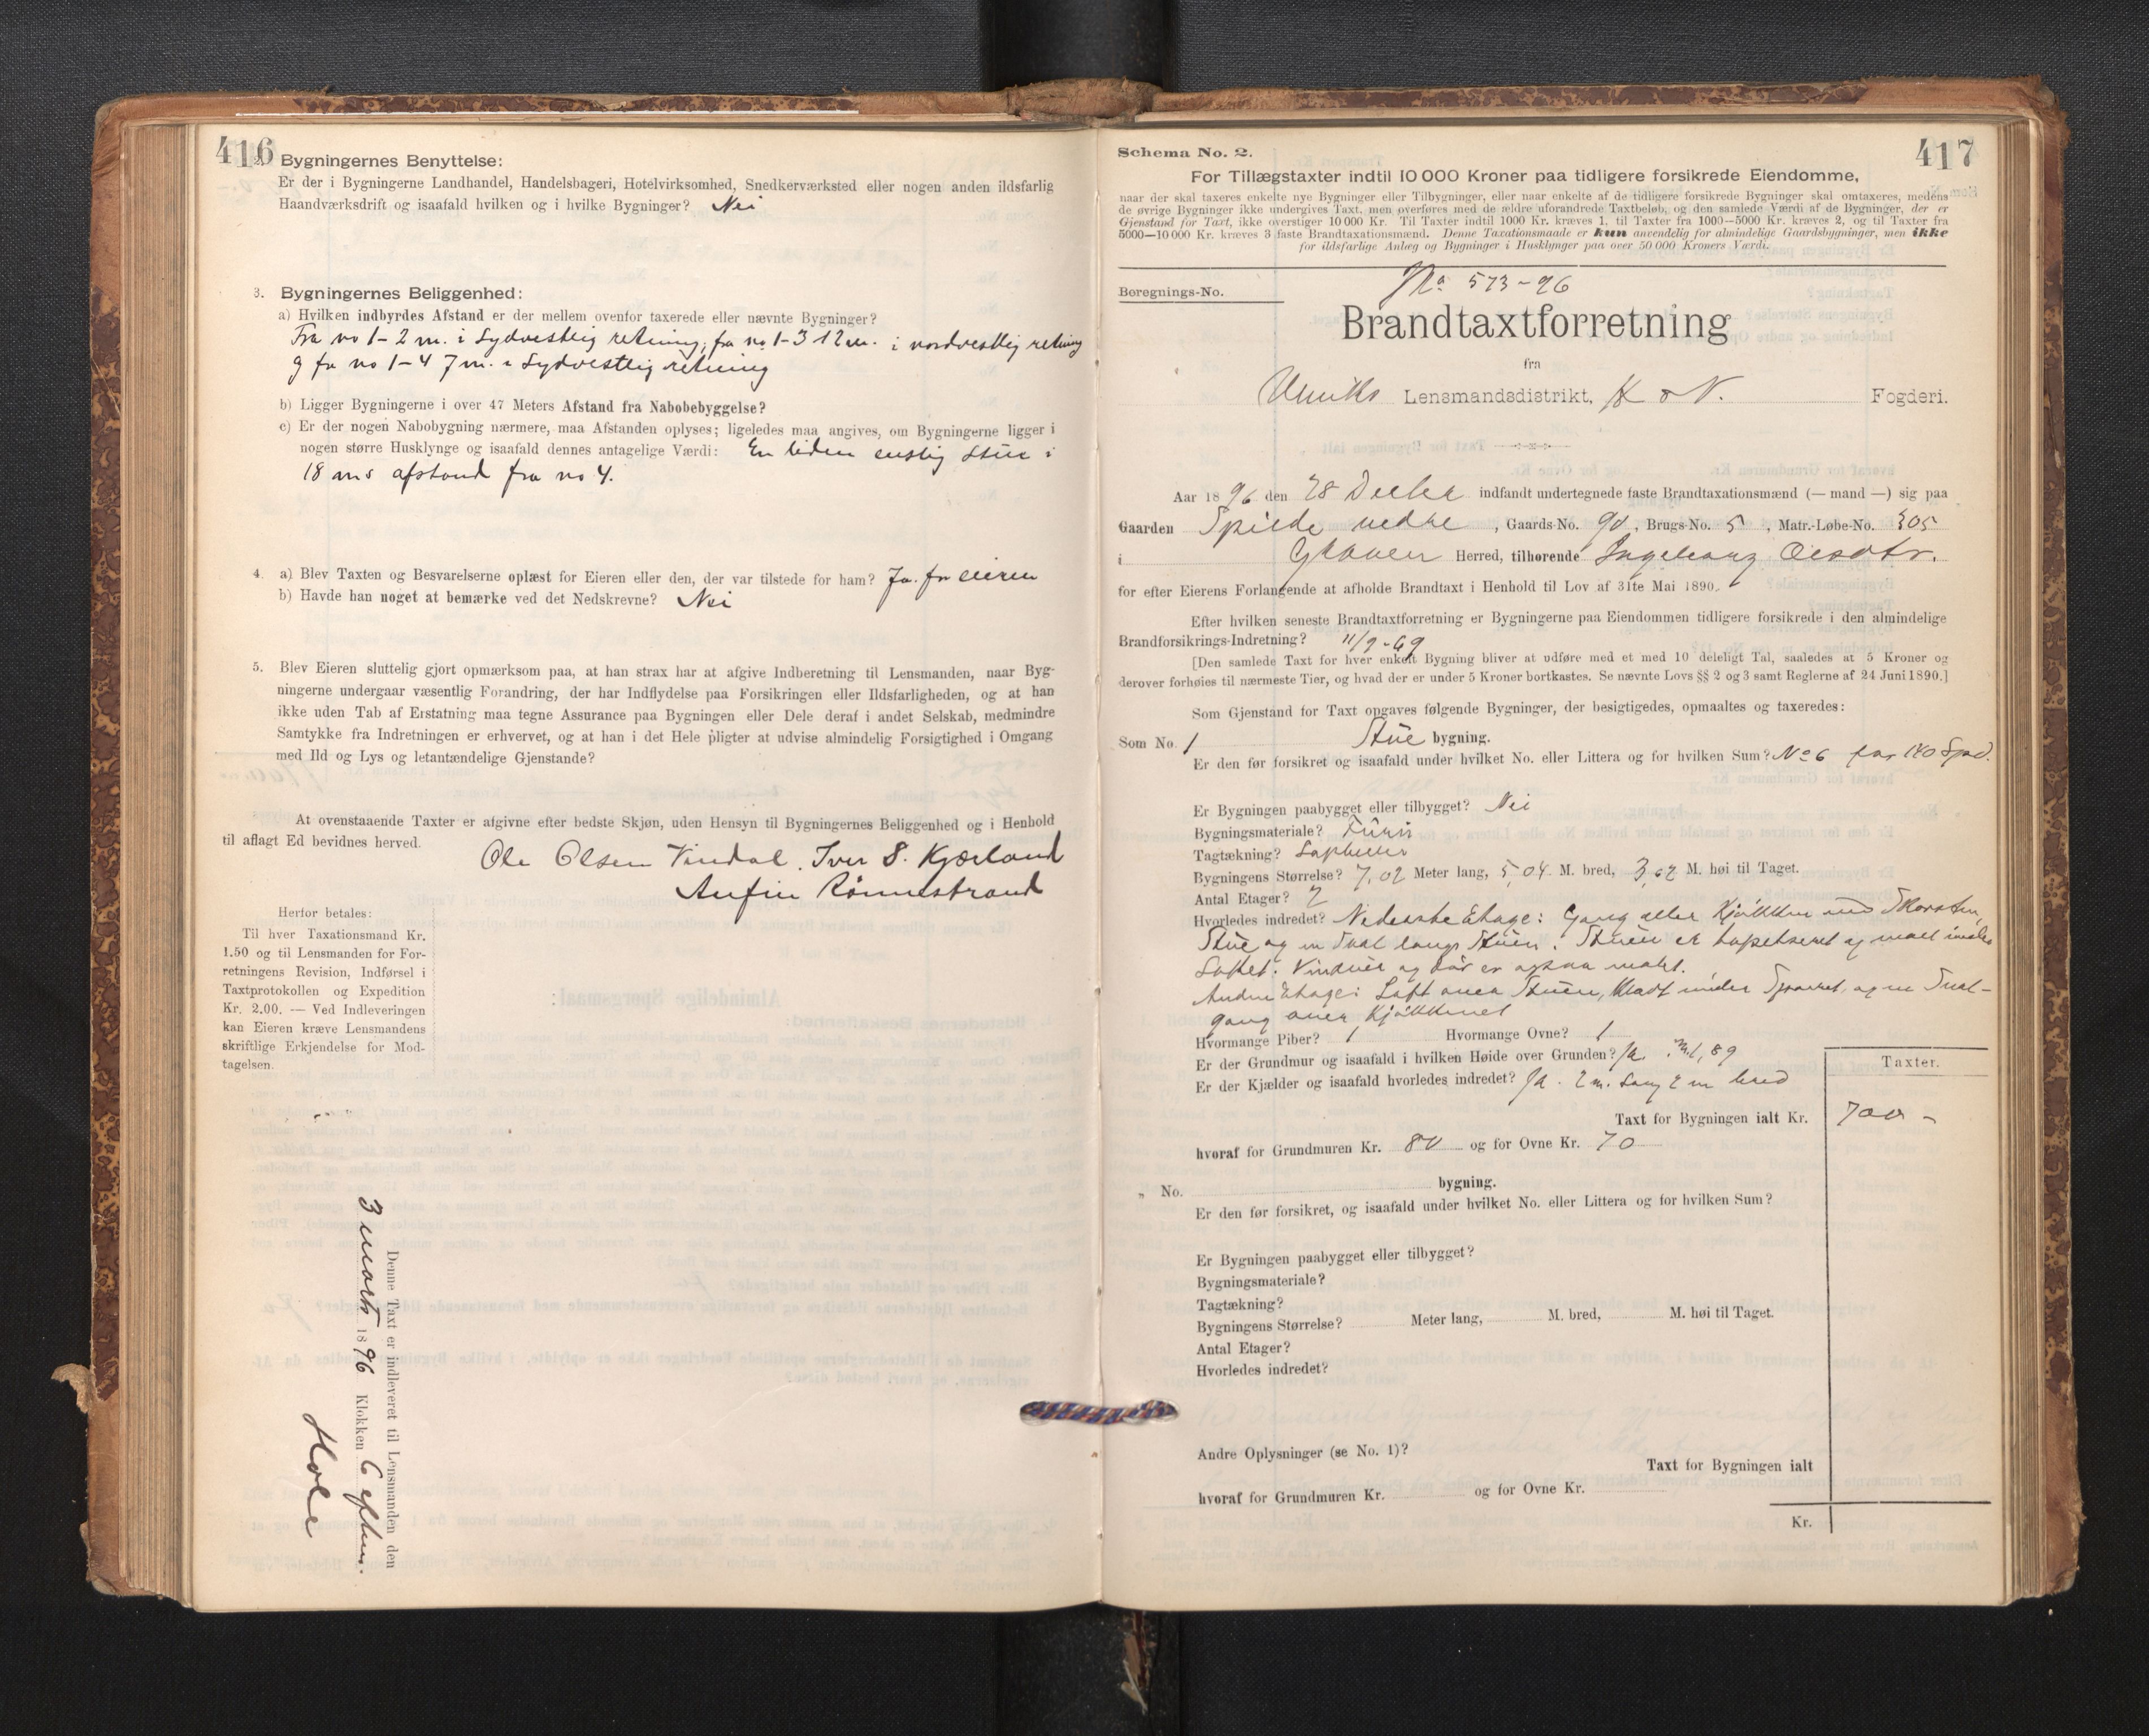 416
2. Bygningernes Benyttelse:
Er der i Bygningerne Landhandel, Handelsbageri, Hotelvirksomhed, Snedkerværksted eller nogen anden ildsfarlig
Haandværksdrift og isaafald hvilken og i hvilke Bygninger? Nei
3. Bygningernes Beliggenhed:
a) Hvilken indbyrdes Afstand er der mellem ovenfor taxerede eller nævnte Bygninger?
Fra no 1 - 2 m. i Sydvestlig retning, fra no 1 - 3 12 m. i nordvestlig retning
og fra no 1 - 4 7 m. i Sydvestlig retning
b) Ligger Bygningerne i over 47 Meters Afstand fra Nabobebyggelse?
c) Er der nogen Nabobygning nærmere, maa Afstanden oplyses; ligeledes maa angives, om Bygningerne ligger i
nogen større Husklynge og isaafald dennes antagelige Værdi: En liden enslig stue i
18 ms afstand fra no 4.
4. a) Blev Taxten og Besvarelserne oplæst for Eieren eller den, der var tilstede for ham? Ja. for eieren
b) Havde han noget at bemærke ved det Nedskrevne? Nei
5. Blev Eieren sluttelig gjort opmærksom paa, at han strax har at afgive Indberetning til Lensmanden, naar Byg-
ningerne undergaar væsentlig Forandring, der har Indflydelse paa Forsikringen eller Ildsfarligheden, og at han
ikke uden Tab af Erstatning maa tegne Assurance paa Bygningen eller Dele deraf i andet Selskab, medmindre
Samtykke fra Indretningen er erhvervet, og at han i det Hele pligter at udvise almindelig Forsigtighed i Omgang
med Ild og Lys og letantændelige Gjenstande?
At ovenstaaende Taxter er afgivne efter bedste Skjøn, uden Hensyn til Bygningernes Beliggenhed og i Henhold
til aflagt Ed bevidnes herved.
Ole Olsen Vindal. Iver S. Kjærland
Anfin Rönnestrand
Herfor betales:
Til hver Taxationsmand Kr.
1.50 og til Lensmanden for For-
retningens Revision, Indførsel i
Taxtprotokollen og Expedition
Kr. 2.00. — Ved Indleveringen
kan Eieren kræve Lensmandens
skriftlige Erkjendelse for Mod-
tagelsen.
Denne Taxt er indleveret til Lensmanden den
3 marts 1896 Klokken 6 efterm.
417
Schema No. 2.
For Tillægstaxter indtil 10 000 Kroner paa tidligere forsikrede Eiendomme,
naar der skal taxeres enkelte nye Bygninger eller Tilbygninger, eller naar enkelte af de tidligere forsikrede Bygninger skal omtaxeres, medens
de øvrige Bygninger ikke undergives Taxt, men overføres med de ældre uforandrede Taxtbeløb, og den samlede Værdi af de Bygninger, der er
Gjenstand for Taxt, ikke overstiger 10 000 Kr. Til Taxter indtil 1000 Kr. kræves 1, til Taxter fra 1000—5000 Kr. kræves 2, og til Taxter fra
5000—10 000 Kr. kræves 3 faste Brandtaxationsmænd. Denne Taxationsmaade er kun anvendelig for almindelige Gaardsbygninger, men ikke
for ildsfarlige Anlæg og Bygninger i Husklynger paa over 50 000 Kroners Værdi.
No 573-96
Beregnings-No.
Brandtaxtforretning
fra
Ulviks Lensmandsdistrikt, H & V. Fogderi.
Aar 1896 den 28 indfandt undertegnede faste Brandtaxationsmænd (— mand —) sig paa
Gaarden Spilde nedre, Gaards-No. 90, Brugs-No. 5, Matr.-Løbe-No. 305
i Graven Herred, tilhørende Ingeborg Olsdtr.
for efter Eierens Forlangende at afholde Brandtaxt i Henhold til Lov af 31te Mai 1890.
Efter hvilken seneste Brandtaxtforretning er Bygningerne paa Eiendommen tidligere forsikrede i den almindelige
Brandforsikrings-Indretning? 11/9-69
[Den samlede Taxt for hver enkelt Bygning bliver at udføre med et med 10 deleligt Tal, saaledes at 5 Kroner og
derover forhøies til nærmeste Tier, og hvad der er under 5 Kroner bortkastes. Se nævnte Lovs §§ 2 og 3 samt Reglerne af 24 Juni 1890.]
Som Gjenstand for Taxt opgaves følgende Bygninger, der besigtigedes, opmaaltes og taxeredes:
Som No. 1 Stue bygning.
Er den før forsikret og isaafald under hvilket No. eller Littera og for hvilken Sum? No 6 for 140 Spd.
Er Bygningen paabygget eller tilbygget? Nei
Bygningsmateriale? Furu
Tagtækning?
Bygningens Størrelse? 7,02 Meter lang, 5,04 M. bred, 3,02 M. høi til Taget.
Antal Etager? 2
Hvorledes indredet? Nederste Etage: Gang eller Kjökken med Skorsten,
Stue og en Sval langs Stuen. Stuen er tapetseret og malt under
Loftet. Vinduer og dör er ogsaa malet.
Anden Etage: Loft over Stuen, Kladt under Sparret, og en Sval-
gang over Kjökkenet
Hvormange Piber? 1 Hvormange Ovne? 1
Er der Grundmur og isaafald i hvilken Høide over Grunden? Ja. m. 1,89
Er der Kjælder og isaafald hvorledes indredet? Ja. 2 m. lang 2 m bred
Taxter.
Taxt for Bygningen ialt Kr. 700 -
hvoraf for Grundmuren Kr. 80 og for Ovne Kr. 70
„ No. bygning.
Er den før forsikret, og isaafald under hvilket No. eller Littera og for hvilken Sum?
Er Bygningen paabygget eller tilbygget?
Bygningsmateriale?
Tagtækning?
Bygningens Størrelse? Meter lang, M. bred, M. høi til Taget.
Antal Etager?
Hvorledes indredet?
Andre Oplysninger (se No. 1)?
Taxt for Bygningen ialt
hvoraf for Grundmuren Kr. og for Ovne Kr.
Kr.